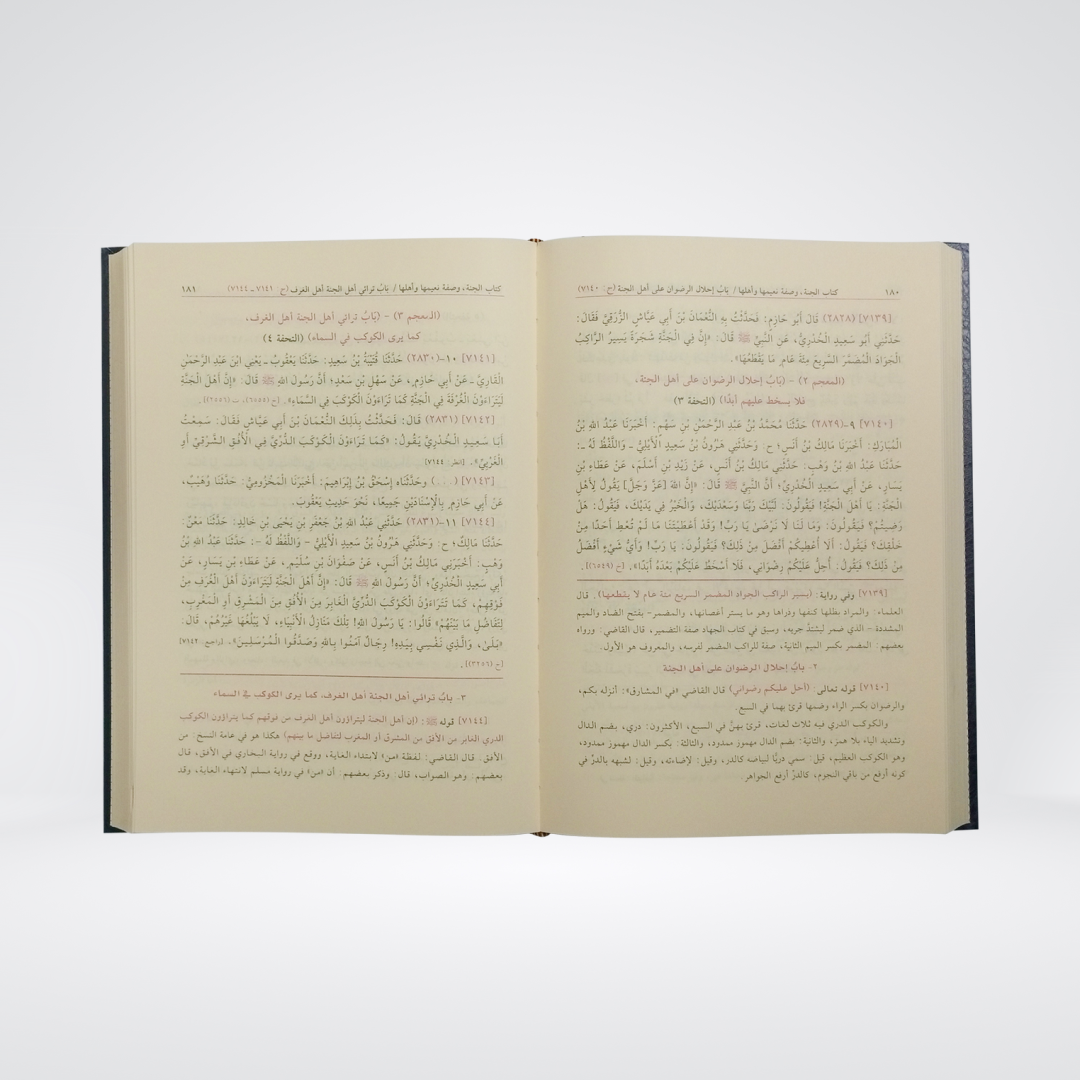 ١٨٠ كتاب الجنة، وصفة نعيمها وأهلها / بَابُ إحلال الرضوان على أهل الجنة (ح: ٧١٤٠)
[٧١٣٩] (٢٨٢٨) قَالَ أَبُو حَازِمٍ: فَحَدَّثْتُ بِهِ النُّعْمَانَ بْنَ أَبِي عَيَّاشٍ الزُّرَقِيَّ فَقَالَ:
حَدَّثَنِي أَبُو سَعِيدٍ الْخُدْرِيُّ، عَنِ النَّبِيِّ ﷺ قَالَ: «إِنَّ فِي الْجَنَّةِ شَجَرَةً يَسِيرُ الرَّاكِبُ
الْجَوَادَ الْمُضَمَّرَ السَّرِيعَ مِئَةَ عَامٍ مَا يَقْطَعُهَا».
(المعجم ٢) - (بَابُ إحلال الرضوان على أهل الجنة،
فلا يسخط عليهم أبدًا) (التحفة ٣)
[٧١٤٠] ٩-(٢٨٢٩) حَدَّثَنَا مُحَمَّدُ بْنُ عَبْدِ الرَّحْمَنِ بْنِ سَهْمٍ: أَخْبَرَنَا عَبْدُ اللهِ بْنُ
الْمُبَارَكِ: أَخْبَرَنَا مَالِكُ بْنُ أَنَسٍ؛ ح: وَحَدَّثَنِي هَرُونُ بْنُ سَعِيدٍ الْأَيْلِيُّ ـ وَاللَّفْظُ لَهُ ـ:
حَدَّثَنَا عَبْدُ اللهِ بْنُ وَهْبٍ: حَدَّثَنِي مَالِكُ بْنُ أَنَسٍ، عَنْ زَيْدِ بْنِ أَسْلَمَ، عَنْ عَطَاءِ بْنِ
يَسَارٍ، عَنْ أَبِي سَعِيدٍ الْخُدْرِيِّ؛ أَنَّ النَّبِيَّ ﷺ قَالَ: «إِنَّ اللهَ [عَزَّ وَجَلَّ] يَقُولُ لِأَهْلِ
الْجَنَّةِ: يَا أَهْلَ الْجَنَّةِ! فَيَقُولُونَ: لَبَّيْكَ رَبَّنَا وَسَعْدَيْكَ، وَالْخَيْرُ فِي يَدَيْكَ، فَيَقُولُ: هَلْ
رَضِيتُمْ؟ فَيَقُولُونَ: وَمَا لَنَا لَا نَرْضَىٰ يَا رَبِّ! وَقَدْ أَعْطَيْتَنَا مَا لَمْ تُعْطِ أَحَدًا مِنْ
خَلْقِكَ؟ فَيَقُولُ: أَلَا أُعْطِيكُمْ أَفْضَلَ مِنْ ذَلِكَ؟ فَيَقُولُونَ: يَا رَبِّ! وَأَيُّ شَيْءٍ أَفْضَلُ
مِنْ ذَلِكَ؟ فَيَقُولُ: أُحِلُّ عَلَيْكُمْ رِضْوَانِي، فَلَا أَسْخَطُ عَلَيْكُمْ بَعْدَهُ أَبَدًا». [خ (٦٥٤٩)].
[٧١٣٩] وفي رواية: (يسير الراكب الجواد المضمر السريع مئة عام لا يقطعها). قال
العلماء: والمراد بظلها كنفها وذراها وهو ما يستر أغصانها، والمضمر- بفتح الضاد والميم
المشددة- الذي ضمر ليشتدَّ جريه، وسبق في كتاب الجهاد صفة التضمير، قال القاضي: ورواه
بعضهم: المضمر بكسر الميم الثانية، صفة للراكب المضمر لفرسه، والمعروف هو الأول.
٢- بابُ إحلال الرضوان على أهل الجنة
[٧١٤٠] قوله تعالى: (أحل عليكم رضواني) قال القاضي «في المشارق»: أنزله بكم،
والرضوان بكسر الراء وضمها قرئ بهما في السبع.
والكوكب الدري فيه ثلاث لغات، قرئ بهنَّ في السبع، الأكثرون: دري، بضم الدال
وتشديد الياء بلا همز، والثانية: بضم الدال مهموز ممدود، والثالثة: بكسر الدال مهموز ممدود،
وهو الكوكب العظيم، قيل: سمي دريًّا لبياضه كالدر، وقيل: لإضاءته، وقيل: لشبهه بالدرِّ في
كونه أرفع من باقي النجوم، كالدرِّ أرفع الجواهر.
كتاب الجنة، وصفة نعيمها وأهلها / بَابُ ترائي أهل الجنة أهل الغرف (ح ٧١٤١ ـ ٧١٤٤) ١٨١
(المعجم ٣) - (بَابُ ترائي أهل الجنة أهل الغرف،
كما يرى الكوكب في السماء) (التحفة ٤)
[٧١٤١] ١٠-(٢٨٣٠) حَدَّثَنَا قُتَيْبَةُ بْنُ سَعِيدٍ: حَدَّثَنَا يَعْقُوبُ ـ يَعْنِي ابْنَ عَبْدِ الرَّحْمَنِ
الْقَارِيَّ ـ عَنْ أَبِي حَازِمٍ، عَنْ سَهْلِ بْنِ سَعْدٍ؛ أَنَّ رَسُولَ اللهِ ﷺ قَالَ: «إِنَّ أَهْلَ الْجَنَّةِ
لَيَتَرَاءَوْنَ الْغُرْفَةَ فِي الْجَنَّةِ كَمَا تَرَاءَوْنَ الْكَوْكَبَ فِي السَّمَاءِ». [خ (٦٥٥٥)، ت (٢٥٥٦)].
[٧١٤٢] (٢٨٣١) قَالَ: فَحَدَّثْتُ بِذَلِكَ النُّعْمَانَ بْنَ أَبِي عَيَّاشٍ فَقَالَ: سَمِعْتُ
أَبَا سَعِيدٍ الْخُدْرِيَّ يَقُولُ: «كَمَا تَرَاءَوْنَ الْكَوْكَبَ الدُّرِّيَّ فِي الْأُفُقِ الشَّرْقِيِّ أَوِ
الْغَرْبِيِّ». [انظر: ٧١٤٤]
[٧١٤٣] (...) وحَدَّثَنَاه إِسْحَقُ بْنُ إِبْرَاهِيمَ: أَخْبَرَنَا الْمَخْزُومِيُّ: حَدَّثَنَا وُهَيْبٌ،
عَنْ أَبِي حَازِمٍ بِالْإِسْنَادَيْنِ جَمِيعًا، نَحْوَ حَدِيثِ يَعْقُوبَ.
[٧١٤٤] ١١-(٢٨٣١) حَدَّثَنِي عَبْدُ اللهِ بْنُ جَعْفَرِ بْنِ يَحْيَى بْنِ خَالِدٍ: حَدَّثَنَا مَعْنٌ:
حَدَّثَنَا مَالِكٌ؛ ح: وَحَدَّثَنِي هَرُونُ بْنُ سَعِيدٍ الْأَيْلِيُّ – وَاللَّفْظُ لَهُ –: حَدَّثَنَا عَبْدُ اللهِ بْنُ
وَهْبٍ: أَخْبَرَنِي مَالِكُ بْنُ أَنَسٍ، عَنْ صَفْوَانَ بْنِ سُلَيْمٍ، عَنْ عَطَاءِ بْنِ يَسَارٍ، عَنْ
أَبِي سَعِيدٍ الْخُدْرِيِّ؛ أَنَّ رَسُولَ اللهِ ﷺ قَالَ: «إِنَّ أَهْلَ الْجَنَّةِ لَيَتَرَاءَوْنَ أَهْلَ الْغُرَفِ مِنْ
فَوْقِهِمْ، كَمَا تَتَرَاءَوْنَ الْكَوْكَبَ الدُّرِّيَّ الْغَابِرَ مِنَ الْأُفُقِ مِنَ الْمَشْرِقِ أَوِ الْمَغْرِبِ،
لِتَفَاضُلِ مَا بَيْنَهُمْ» قَالُوا: يَا رَسُولَ اللهِ! تِلْكَ مَنَازِلُ الْأَنْبِيَاءِ، لَا يَبْلُغُهَا غَيْرُهُمْ، قَالَ:
«بَلَىٰ، وَالَّذِي نَفْسِي بِيَدِهِ! رِجَالٌ آمَنُوا بِاللهِ وَصَدَّقُوا الْمُرْسَلِينَ». [راجع: ٧١٤٢]
[خ (٣٢٥٦)].
٣- بابُ ترائي أهل الجنة أهل الغرف، كما يرى الكوكب في السماء
[٧١٤٤] قوله ﷺ: (إن أهل الجنة ليتراؤون أهل الغرف من فوقهم كما يتراؤون الكوكب
الدري الغابر من الأفق من المشرق أو المغرب لتفاضل ما بينهم) هكذا هو في عامة النسخ: من
الأفق. قال القاضي: لفظة «من» لابتداء الغاية، ووقع في رواية البخاري في الأفق، قال
بعضهم: وهو الصواب، قال: وذكر بعضهم: أن «من» في رواية مسلم لانتهاء الغاية، وقد